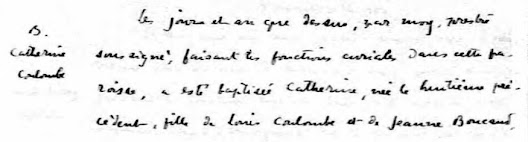 B.
Catherine
Coulombe
Les jour et an que dessus, par moy, prestre
soussigné, faisant les fonctions curiales dans cette pa-
roisse, a esté baptisée Catherine, née le huitième pré-
cédent, fille de Louis Coulombe et de Jeanne Boucault,